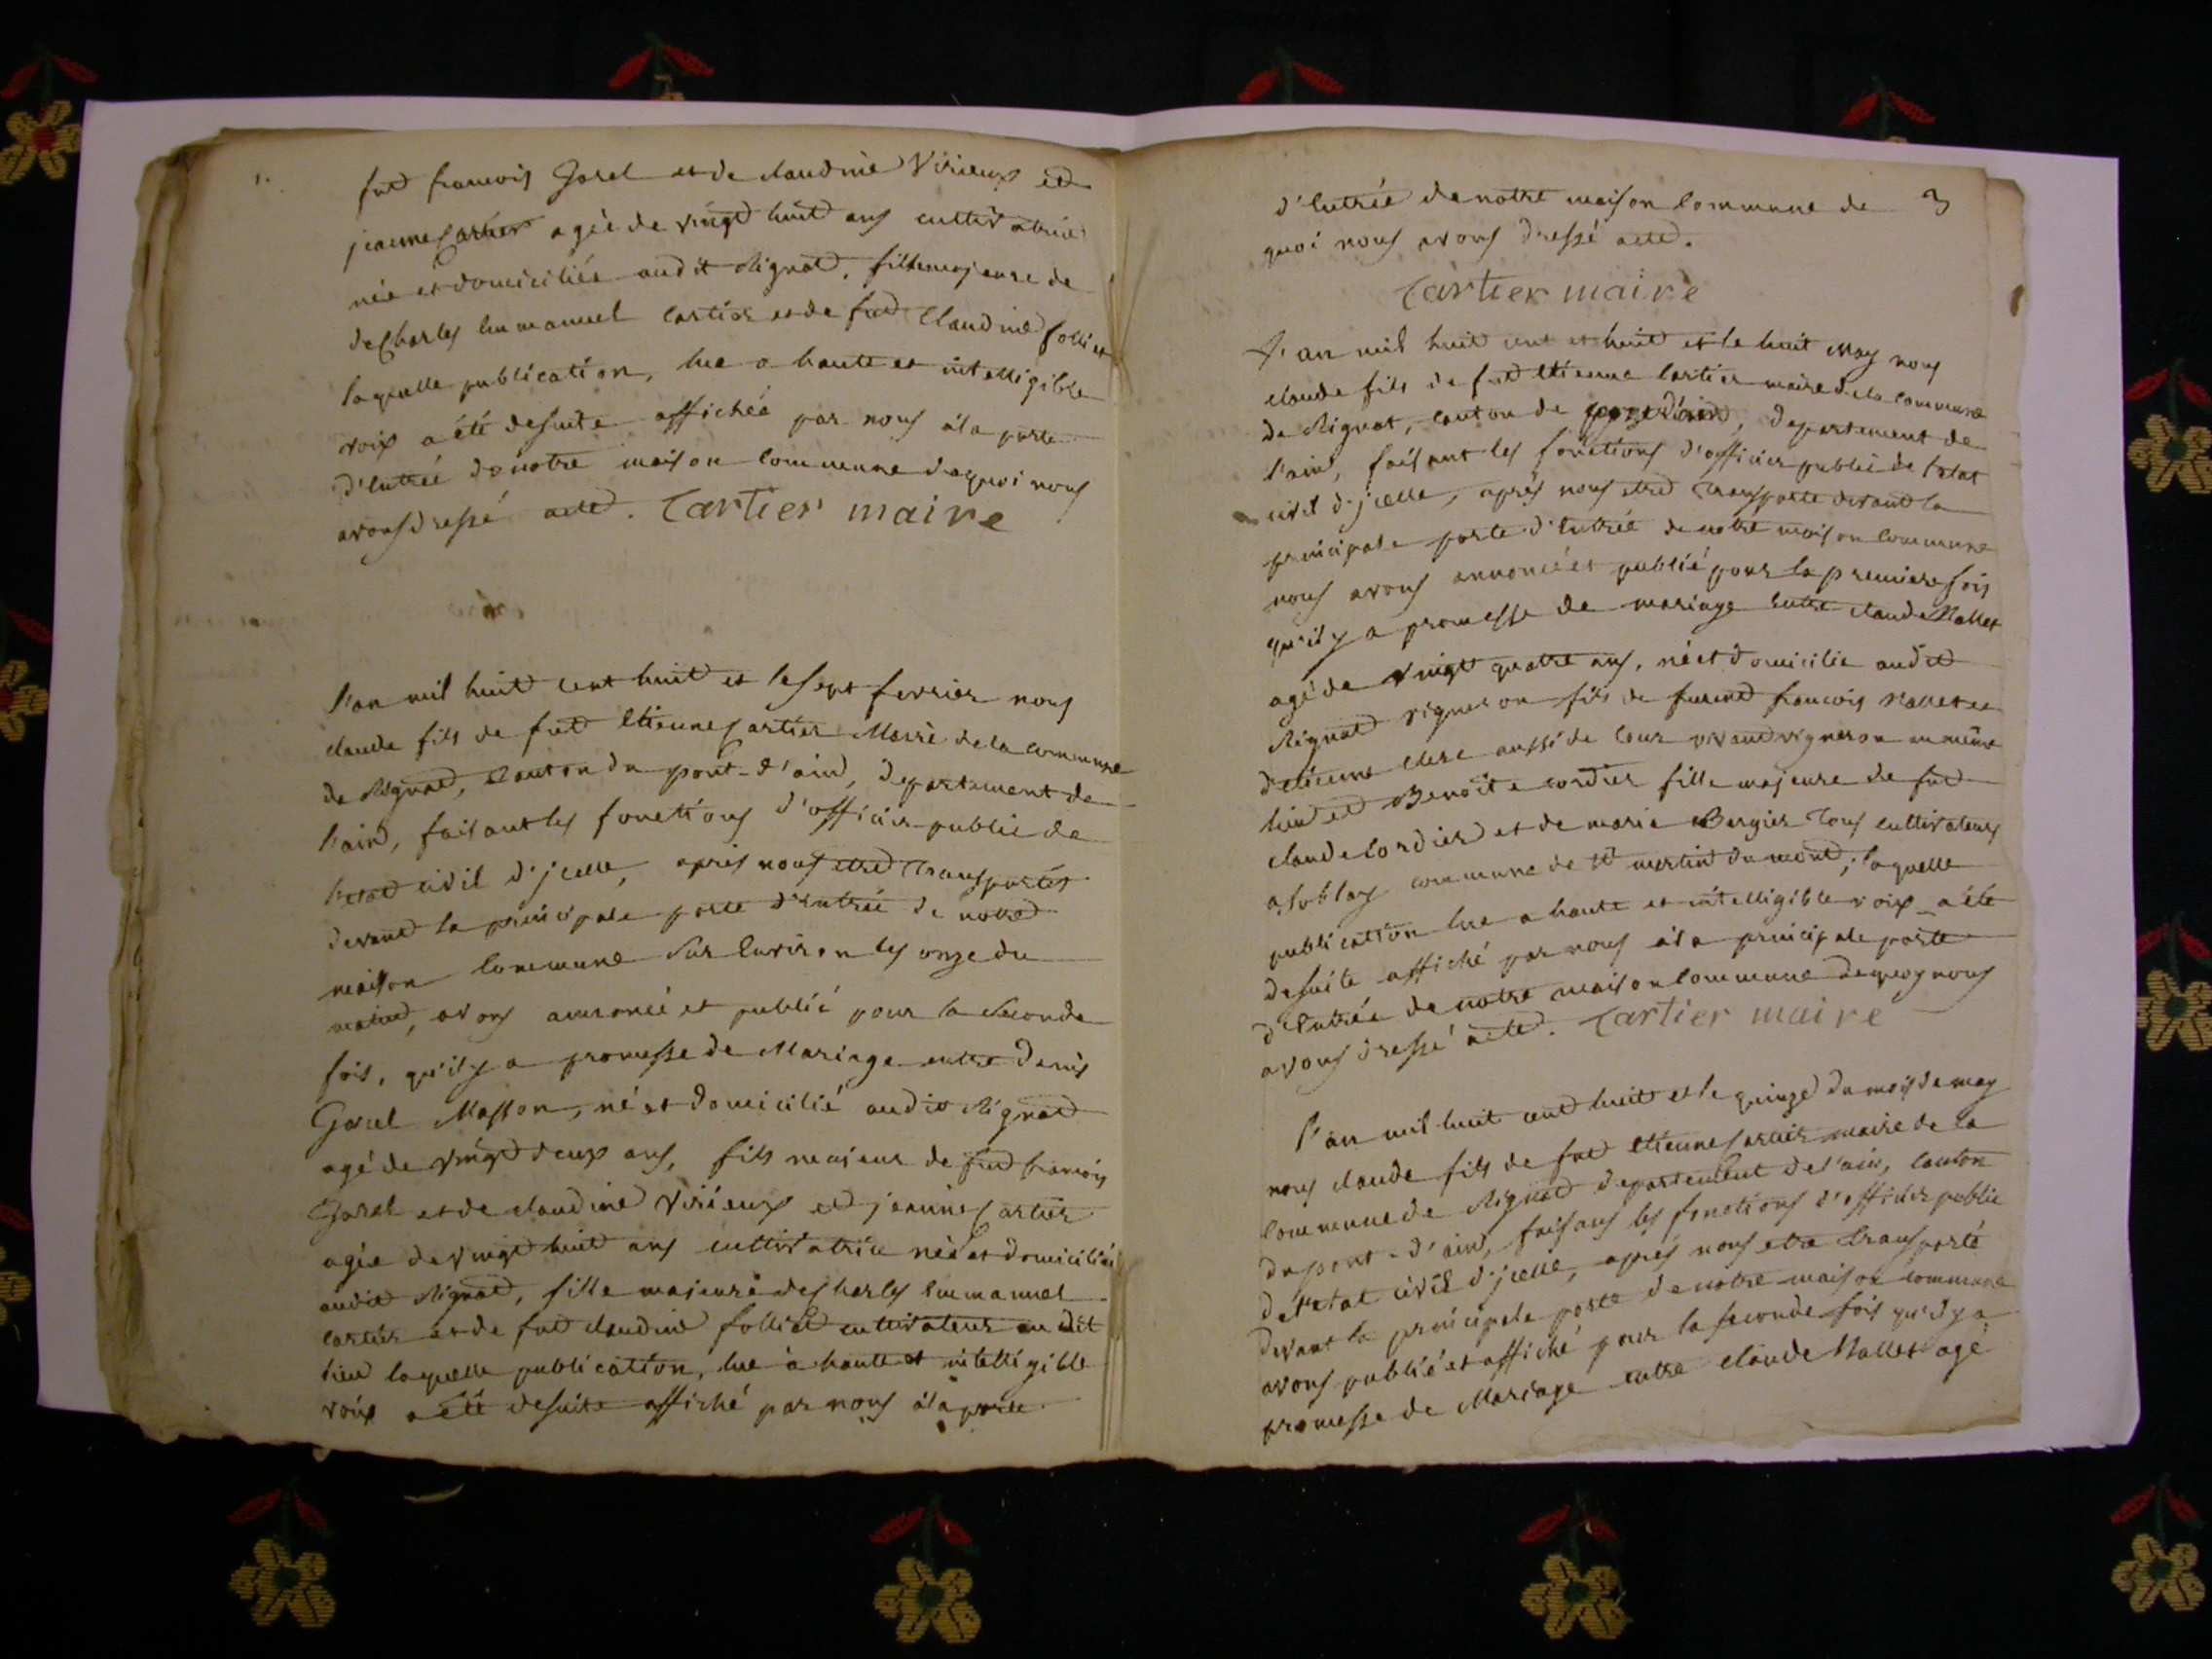 feud francois Gorel et de claudine Virieux ed
jeanne Cartier agée de vingt huit ans cultivatrice
née et domiciliée audit Rignad, fille majeure de
de Charles Emmanuel Cartier et de feud Claudine folliet
laquelle publication, lue a haute et intelligible
voix a été desuite affichée par nous a la porte
d'entrée de notre maison commune dequoi nous
avons dressé acted. Cartier maire
l'an mil huit cent huit et le sept fevrier nous
claude fils de feud Etienne Cartier Maire de la commune
de Rignad, Canton du pont-d'ain, departement de
l'ain, faisant les fonctions d'officier public de
l'etad civil d'jcelle, apres nous etred transportés
devand la principale porte d'entrée de notre
maison commune sur Environ les onze du
matind, avons annoncé et publié pour la seconde
fois, qu'il y a promesse de Mariage entre Denis
Gorel Masson, né et domicilié audit Rignad
agé de vingt deux ans, fils majeur de feud francois
Gorel et de claudine Virieux ed jeanne Cartier
agée de vingt huit ans cultivatrice née et domiciliée
audit Rignad, fille majeure de Charles Emmanuel
Cartier et de feud claudine folliet cultivateur au dit
lieu laquelle publication, lue à haute et intelligible
voix a été desuite affiché par nous a la porte
d'Entrée de notre maison commune de 3
quoi nous avons dressé acted.
Cartier maire
L'an mil huit cent et huit et le huit May nous
claude fils de feud Etienne Cartier maire de la commune
de Rignat, canton de , departement de
l'ain, faisant les fonctions d'officier public de l'etat
civil d'jcelle, après nous etred transporte devant la
principale porte d'Entrée de notre maison commune
nous avons annoncé et publié pour la premiere fois
qu'il y a promesse de mariage Entre claude Nallet
agé de vingt quatre ans, né et domicilie audit
Rignad vigneron fils de francois Nallet et
aussi de leur vivand vigneron au même
lieu ed Benoite cordier fille majeure de feud
claude Cordier et de marie Bergier tous cultivateurs
a commune de St martin du mont; laquelle
publication lue a haute et intelligible voix a été
desuite affiché par nous a la principale porte
d'Entrée de notre maison commune dequoy nous
avons dressé acted. Cartier maire
l'an mil huit cent huit et le quinze du mois de may
nous claude fils de feud Etienne Cartier maire de la
commune de Rignad departement de l'ain, canton
du pont-d'ain, faisans les fonctions d'officier public
de l'etat civil d'jcelle, après nous etre transporté
devant la principale porte de notre maison commune
avons publié et affiché pour la seconde fois qu'il y a
promesse de Mariage entre claude Nallet agé